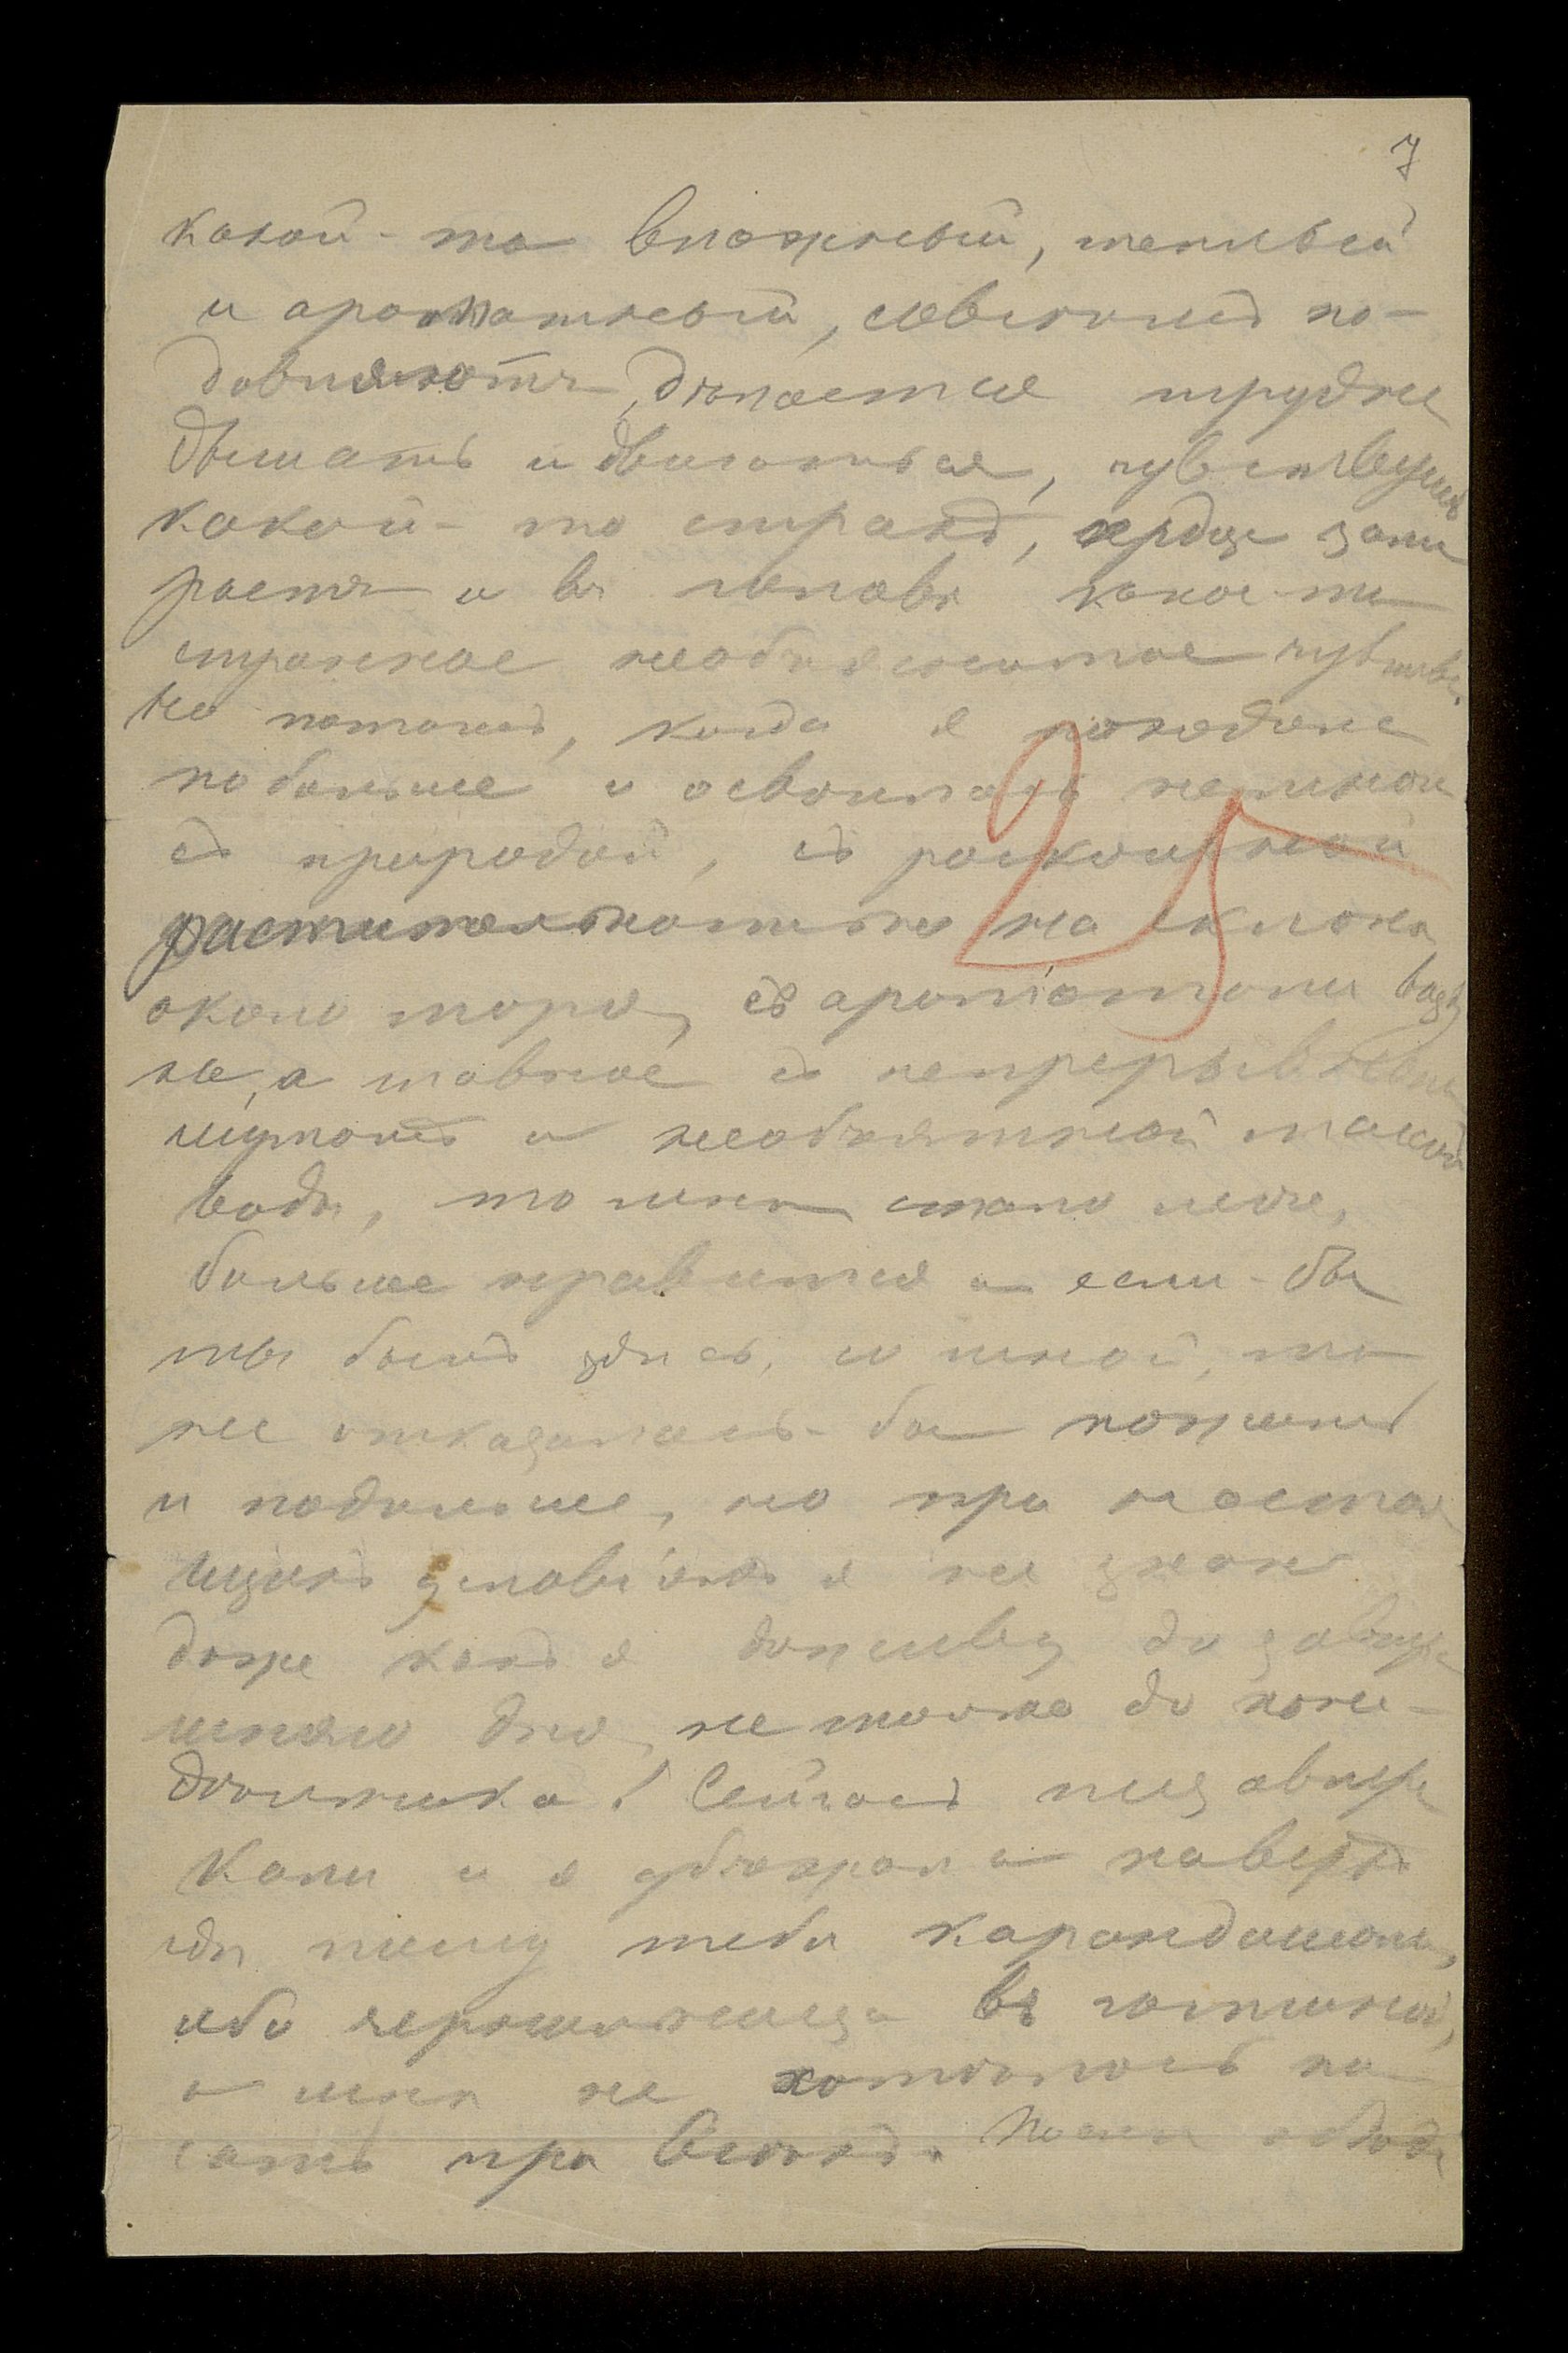 7
какой-то влажный, теплый
и ароматный, словомъ по-
давляютъ, дѣлается трудно
дышать и двигаться, чувствуешь
какой-то страхъ, сердце зами
раетъ и въ головѣ какое-то
странное необъяснимое чувство.
Но потомъ, когда я походила
побольше и освоилась немного
съ природой, съ роскошной
25
растительностью на склонѣ
около моря, съ ароматами возду
ха, а главное съ непрерывнымъ
шумомъ и необъятной массой
воды, то мнѣ стало легче,
больше нравится и если-бы
ты былъ здѣсь, со мной, то
не отказалась-бы пожить
и подольше, но при настоя
щихъ условіяхъ я не знаю
даже какъ я доживу до завтра
шняго дня, не только до поне-
дѣльника! Сейчасъ позавтра
кали и я убѣжала наверхъ
гдѣ пишу тебѣ карандашомъ,
ибо чернильница въ гостиной,
а мнѣ не хотѣлось пи
сать при всѣхъ. Послѣ обѣда